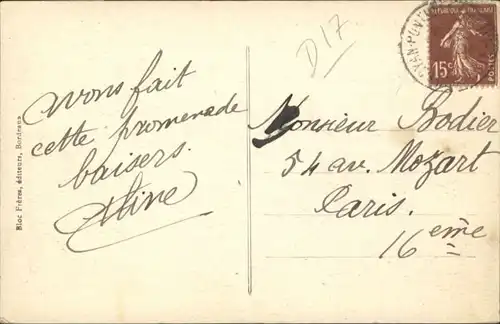 avons fait
cette promenade
baisers.
Aline
D17
Monsieur Bodier
54 av. Mozart
Paris.
16eme
Bloc Frères, éditeurs, Bordeaux
REPUBLIQUE FRANÇAISE
15c
POSTES